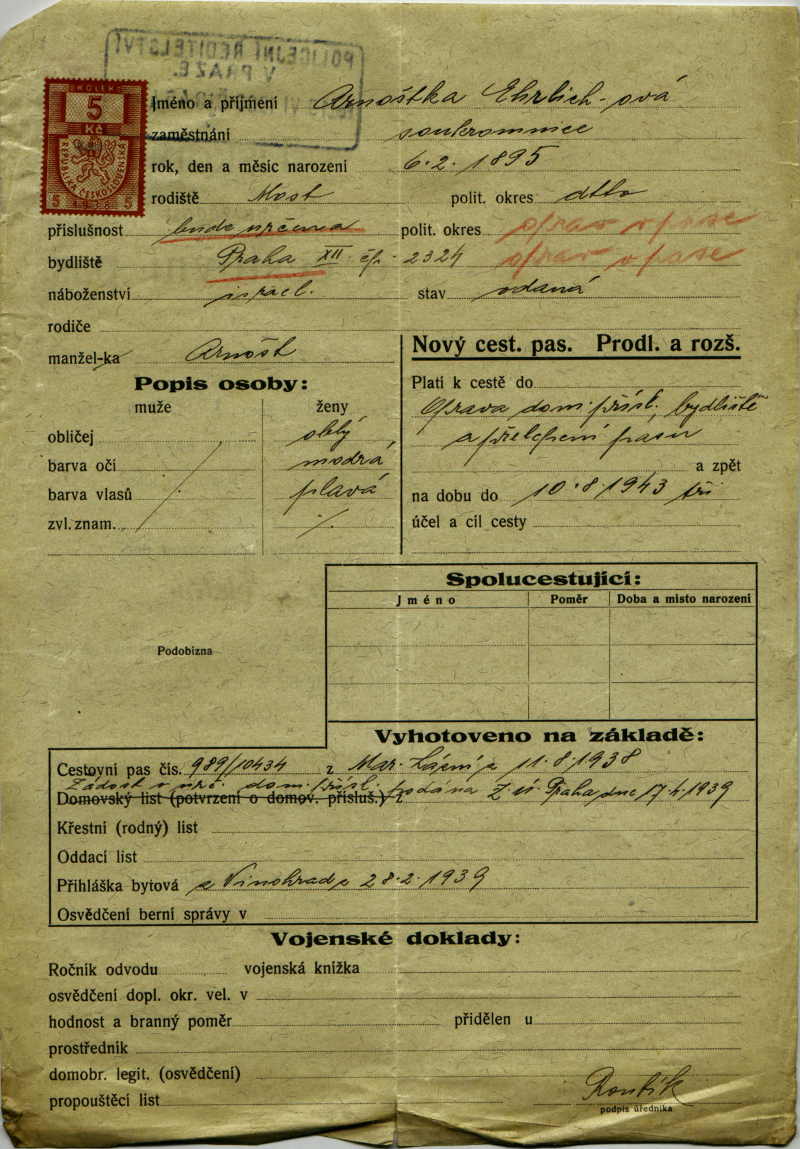 POLICEJNÍ ŘEDITELSTVÍ
V PRAZE.
KOLEK
5
Kč
REPUBLIKA ČESKOSLOVENSKÁ
5 1938 5
Jméno a příjmení Arnoštka Ehrlich-ová
zaměstnání soukromnice
rok, den a měsíc narození 6.2.1895
rodiště Most polit. okres dtto
příslušnost bude určena polit. okres oprav v pase
bydliště Praha XII. čp. 2324 oprav v pase
náboženství israel. stav vdaná
rodiče
manžel-ka Arnošt
Nový cest. pas. Prodl. a rozš.
Popis osoby:
muže ženy
obličej oblý
barva očí modrá
barva vlasů plavá
zvl. znam. ·/.
Platí k cestě do
Oprava dom. přísl., bydliště
a přelepení pasu
a zpět
na dobu do 10.8.1943 tři
účel a cíl cesty
Spolucestující:
Jméno Poměr Doba a místo narození
Podobizna
Vyhotoveno na základě:
Cestovní pas čís. 989/10434 z Mar. Lázní z 11.8.1938
Žádost o urč. dom. přísl. podána Z ú. Praha dne 17.4.1939
Domovský list (potvrzení o domov. přísluš.) z
Křestní (rodný) list
Oddací list
Přihláška bytová z Vinohrad z 28.2.1939
Osvědčení berní správy v
Vojenské doklady:
Ročník odvodu vojenská knížka
osvědčení dopl. okr. vel. v
hodnost a branný poměr přidělen u
prostředník
domobr. legit. (osvědčení)
propouštěcí list
podpis úředníka